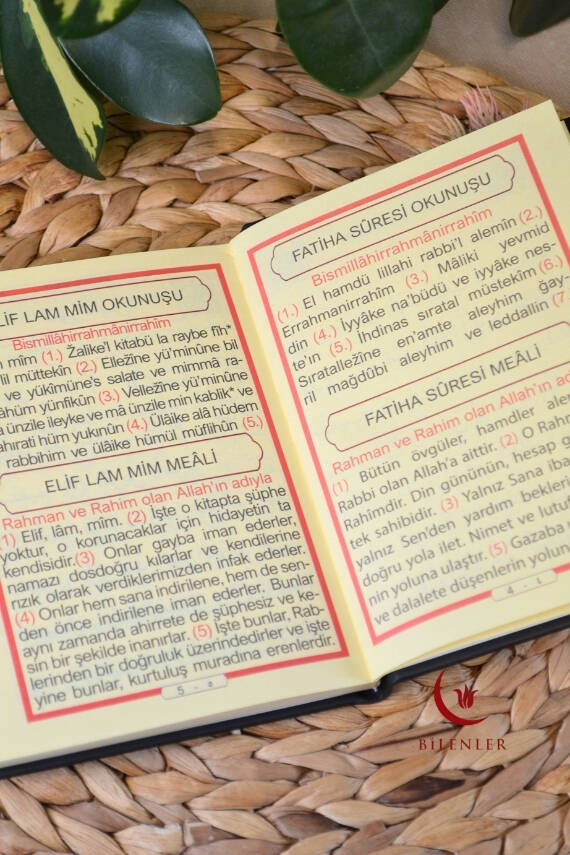 LİF LAM MİM OKUNUŞU
Bismillâhirrahmânirrahîm
m mîm (1.) Żalike'l kitabü la raybe fîh*
lil müttekîn (2.) Ellezîne yü'minûne bil
ve yükîmûne's salate ve mimmâ ra-
ahüm yünfikûn (3.) Vellezîne yü'minûne
a ünzile ileyke ve mâ ünzile min kablik* ve
ahırati hüm yukınûn (4.) Ülâike alâ hüdem
rabbihim ve ülâike hümül müflihûn (5.)
ELİF LAM MİM MEÂLİ
Rahman ve Rahim olan Allah'ın adıyla
1) Elif, lâm, mîm. (2) İşte o kitapta şüphe
yoktur, o korunacaklar için hidayetin ta
kendisidir.(3) Onlar gayba iman ederler,
namazı dosdoğru kılarlar ve kendilerine
rızık olarak verdiklerimizden infak ederler.
(4) Onlar hem sana indirilene, hem de sen-
den önce indirilene iman ederler. Bunlar
aynı zamanda ahirrete de şüphesiz ve ke-
sin bir şekilde inanırlar. (5) İşte bunlar, Rab-
lerinden bir doğruluk üzerindedirler ve işte
yine bunlar, kurtuluş muradına erenlerdir.
5 - ٥
FATİHA SÛRESİ OKUNUŞU
Bismillâhirrahmânirrahîm
(1.) El hamdü lillahi rabbi'l alemîn (2.)
Errahmanirrahîm (3.) Mâliki yevmid
din (4.) İyyâke na'büdü ve iyyâke nes-
te'ın (5.) İhdinas sıratal müstekîm (6.)
Sıratallezîne en'amte aleyhim ğay-
ril mağdûbi aleyhim ve leddallin (7.
FATİHA SÛRESİ MEÂLİ
Rahman ve Rahim olan Allah'ın a
(1) Bütün övgüler, hamdler alem
Rabbi olan Allah'a aittir. (2) O Rahm
Rahîmdir. Din gününün, hesap g
tek sahibidir. (3) Yalnız Sana iba
yalnız Sen'den yardım bekleri
doğru yola ilet. Nimet ve lutu
nin yoluna ulaştır. (5) Gazaba
ve dalalete düşenlerin yolun
4 - ٤
BİLENLER